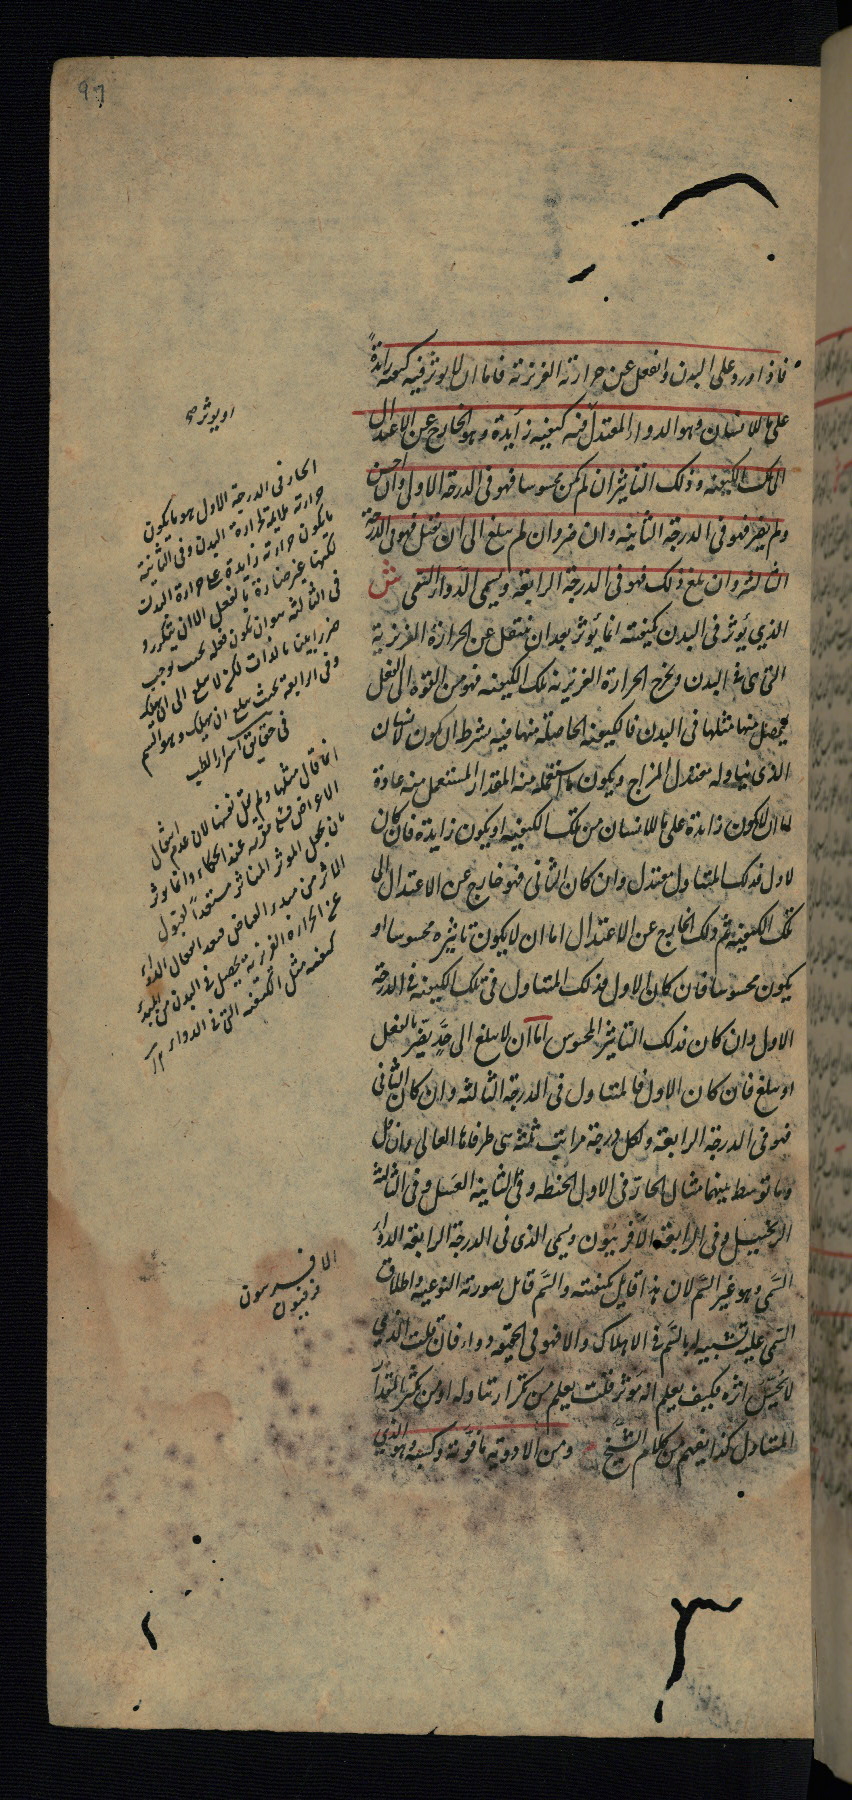 فاذا ورد على البدن وانفعل عن حرارته الغريزية فاما ان لا يوثر فيه كيفية زايدة
على ما للانسان وهو الدواء المعتدل فيه كيفية زايدة وهو الخارج عن الاعتدال
الى تلك الكيفية وذلك التاثير ان لم يكن محسوسا فهو فى الدرجة الاولى وان احس
ولم يضر فهو فى الدرجة الثانية وان ضر وان لم يبلغ الى ان يقتل فهو فى الدرجة
الثالثة وان بلغ ذلك فهو فى الدرجة الرابعة ويسمى الدواء السمى ش
الذي يؤثر فى البدن كيفيته انما يؤثر بعد ان ينفعل عن الحرارة الغريزية
التى فى البدن ويخرج الحرارة الغريزية تلك الكيفية فهو من القوة الى الفعل
فيحصل منها مثلها فى البدن فالكيفية الحاصلة منها فيه بشرط ان يكون الانسان
الذى يتناوله معتدل المزاج ويكون ما استعمله منه المقدار المستعمل منه عادة
اما ان لا يكون زائدة على ما للانسان من تلك الكيفية او يكون زايدة فان كان
الاول فذلك المتناول معتدل وان كان الثانى فهو خارج عن الاعتدال الى
تلك الكيفية ثم ذلك الخارج عن الاعتدال اما ان لا يكون تاثيره محسوسا او
يكون محسوسا فان كان الاول فذلك المتناول فى تلك الكيفية فى الدرجة
الاولى وان كان فذلك التاثير المحسوس اما ان لا يبلغ الى حد يضر بالفعل
او يبلغ فان كان الاول فالمتناول فى الدرجة الثالثة وان كان الثانى
فهو فى الدرجة الرابعة ولكل درجة مراتب ثلثة هى طرفاها العالى والسافل
وما توسط بينهما مثال الحار فى الاول الحنطة وفى الثانية العسل وفى الثالثة
الزنجبيل وفى الرابعة الافربيون ويسمى الذى فى الدرجة الرابعة الدواء
السمى وهو غير السم لان هذا قاتل بكيفيته والسم قاتل بصورته النوعية واطلاق
السمى عليه تشبيه له بالسم فى الاهلاك والا فهو فى الحقيقة دواء فان قلت الذي
لا يحس اثره فكيف يعلم انه مؤثر قلت يعلم من تكرار تناوله او من تكثير المقدار
المتناول كذا يفهم من كلام الشيخ ومن الادوية ما قوته وكيفيته وهو الذي
او يوثر صح
الحار فى الدرجة الاول هو ما يكون
حرارته ملايمة لحرارة البدن وفى الثانية
ما يكون حرارته زايدة على حرارة البدن
لكنها غير ضارة بالفعل الا ان يتكرر و
فى الثالثة هو ان يكون فعله بحيث يوجب
ضررا بينا بالذات لكن لا يبلغ الى ان يهلك
وفى الرابعة بحيث يبلغ ان يهلك وهو السم
فى حقايق اسرار الطب
انما قال مثلها ولم يقل نفسها لان عدم انتقال
الاعراض عند الحكماء وانما يوثر
بان يجعل الموثر المتاثر مستعدا لقبول
الاثر من مبدء الفياض فبعد انفعال الدواء
عن الحرارة الغريزية يحصل فى البدن من المبدء
كيفية مثل الكيفية التى فى الدواء ١٢
الافربيون
فرفيون